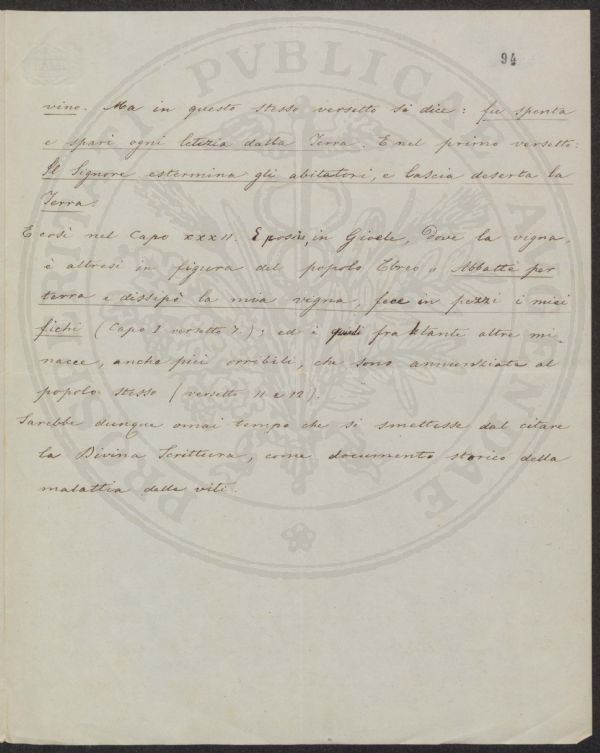 94
PROSPERITATI PVBLICAE AVGENDAE
vino. Ma in questo stesso versetto si dice: fu spenta
e sparì ogni letizia dalla Terra. E nel primo versetto:
Il Signore estermina gli abitatori, e lascia deserta la
Terra.
E così nel Capo XXXII. E posio, in Gioele, dove la vigna,
è altresì in figura del popolo Ebreo, Abbatte per
terra e dissipò la mia vigna, fece in pezzi i miei
fichi (Capo I versetto 7.); ed è quindi fra tante altre mi-
nacce, anche più orribili, che sono annunziate al
popolo stesso (versetto 11 e 12).
Sarebbe dunque omai tempo che si smettesse dal citare
la Divina Scrittura, come documento storico della
malattia delle viti.